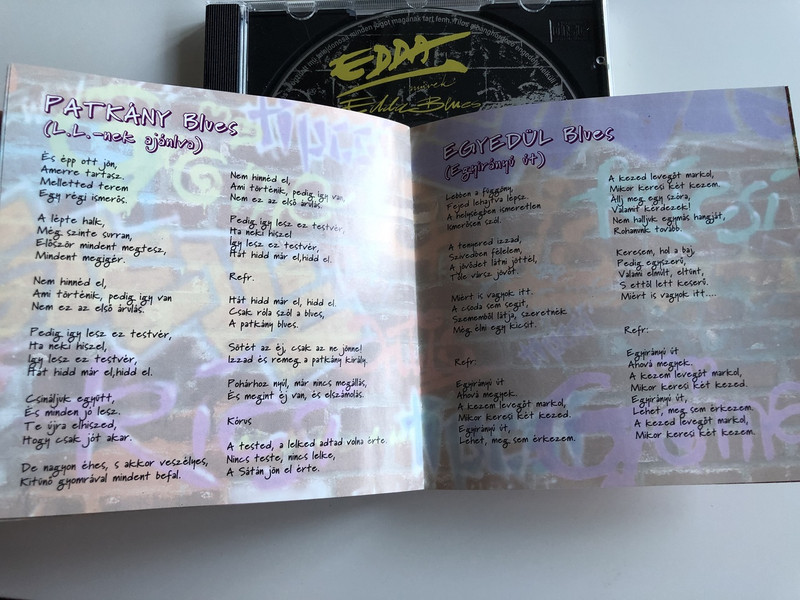 EDDA
művek
Edda Blues
PATKÀNY Blues
(L.L.-nek ajánlva)
És épp ott jön,
Amerre tartasz.
Melletted terem
Egy régi ismerős.
A lépte halk,
Még szinte surran,
Elöször mindent megtesz,
Mindent megígér.
Nem hinnéd el,
Ami történik, pedig igy van
Nem ez az elsö árulás.
Pedig igy lesz ez testvér,
Ha neki hiszel,
Igy lesz ez testvér,
Hát hidd már el,hidd el.
Csináljuk együtt,
És minden jó lesz.
Te újra elhiszed,
Hogy csak jót akar.
De nagyon éhes, s akkor veszélyes,
Kitünö gyomrával mindent befal.
Nem hinnéd el,
Ami történik, pedig igy van,
Nem ez az elsö árulás.
Pedig igy lesz ez testvér,
Ha neki hiszel
Igy lesz ez testvér,
Hát hidd már el,hidd el.
Refr.
Hát hidd már el, hidd el.
Csak róla szól a blues,
A patkány blues.
Sötét az éj, csak az ne jönne!
Izzad és remeg a patkány király.
Pohárhoz nyúl, már nincs megállás,
És megint éj van, és elszámolás.
Kórus
A tested, a lelked adtad volna érte.
Nincs teste, nincs lelke,
A Sátán jön el érte.
EGYEDÜL Blues
(Egyirányú út)
Lebben a függöny,
Fejed lehajtva lépsz.
A helységben ismeretlen
Ismerösen szól.
A tenyered izzad,
Szívedben félelem,
A jövödet látni jöttél,
Töle vársz jövöt.
Miért is vagyok itt.
A csoda sem segít,
Szememböl látja, szeretnék
Még élni egy kicsit.
Refr:
Egyirányú út
Ahová megyek.
A kezem levegöt markol,
Mikor keresi két kezed.
Egyirányú út,
Lehet, meg sem érkezem.
A kezed levegöt markol,
Mikor keresi két kezem.
Állj meg egy szóra,
Valamit kérdezek!
Nem halljuk egymás hangját,
Rohanunk tovább.
Keresem, hol a baj,
Pedig egyszerü,
Valami elmúlt, eltünt,
S ettöl lett keserü.
Miért is vagyok itt....
Refr:
Egyirányú út
Ahová megyek.
A kezem levegöt markol,
Mikor keresi két kezed.
Egyirányú út,
Lehet, meg sem érkezem.
A kezed levegöt markol,
Mikor keresi két kezem.